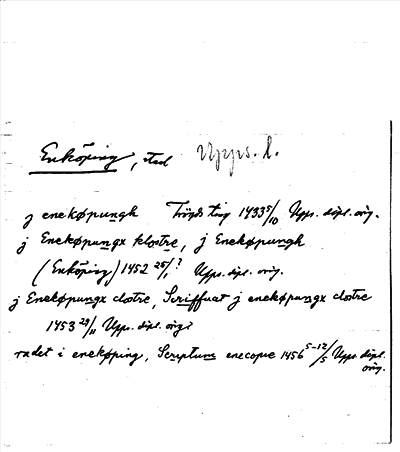 Enköping, stad Upps. l.
j enekøpungh Trögds ting 1433 5/10 Upps. dipl. orig.
j Enekøpungx klostre, j Enekøpungh
(Enköping) 1452 25/1? Upps. dipl. orig.
j Enekøpungx clostre, Scriffuat j enekøpungx clostre
1453 29/11 Upps. dipl. orig.
radet i enekøping, Scriptum enecopie 1456 5-12/5 Upps. dipl.
orig.